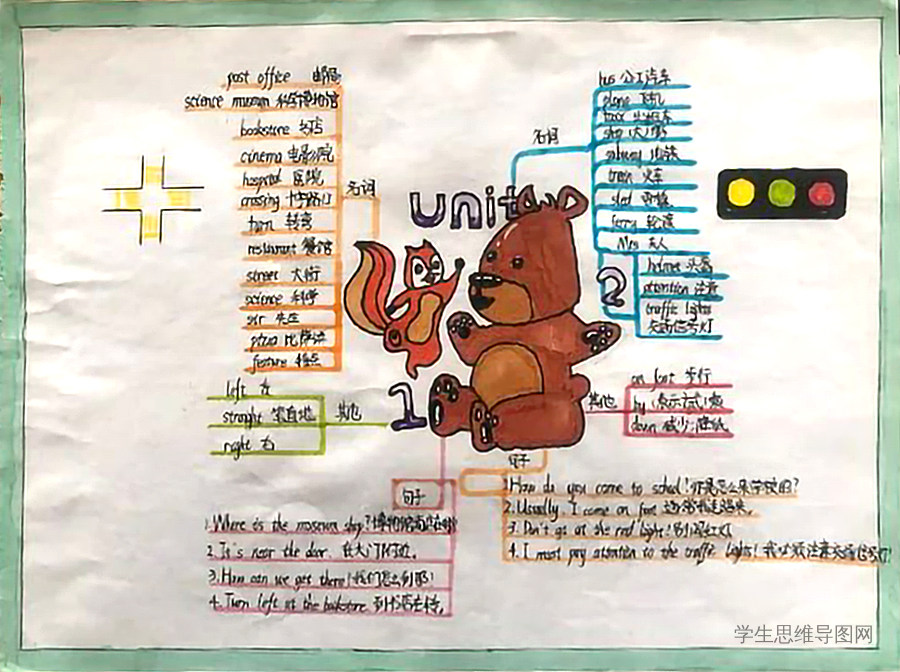 unit
post office 邮局
science museum 科学博物馆
bookstore 书店
cinema 电影院
hospital 医院
crossing 十字路口
turn 转弯
restaurant 餐馆
street 大街
science 科学
sir 先生
pizza 比萨饼
feature 特点
名词
left 左
straight 笔直地
right 右
其他
1
句子
1.Where is the museum shop?博物馆商店在哪
2.It's near the door. 在大门附近。
3.How can we get there?我们怎么到那
4.Turn left at the bookstore 到书店左转。
名词
bus 公共汽车
plane 飞机
taxi 出租车
ship (大)船
subway 地铁
train 火车
sled 雪橇
ferry 轮渡
Mrs 夫人
helmet 头盔
attention 注意
traffic lights
交通信号灯
2
on foot 步行
by (表示方式)乘
down 减少;降低
其他
句子
1.How do you come to school?你是怎么来学校的?
2.Usually, I come on foot
3. Don't go at the red light!别闯红灯
4. I must pay attention to the traffic lights! 我必须注意交通信号灯!
学生思维导图网